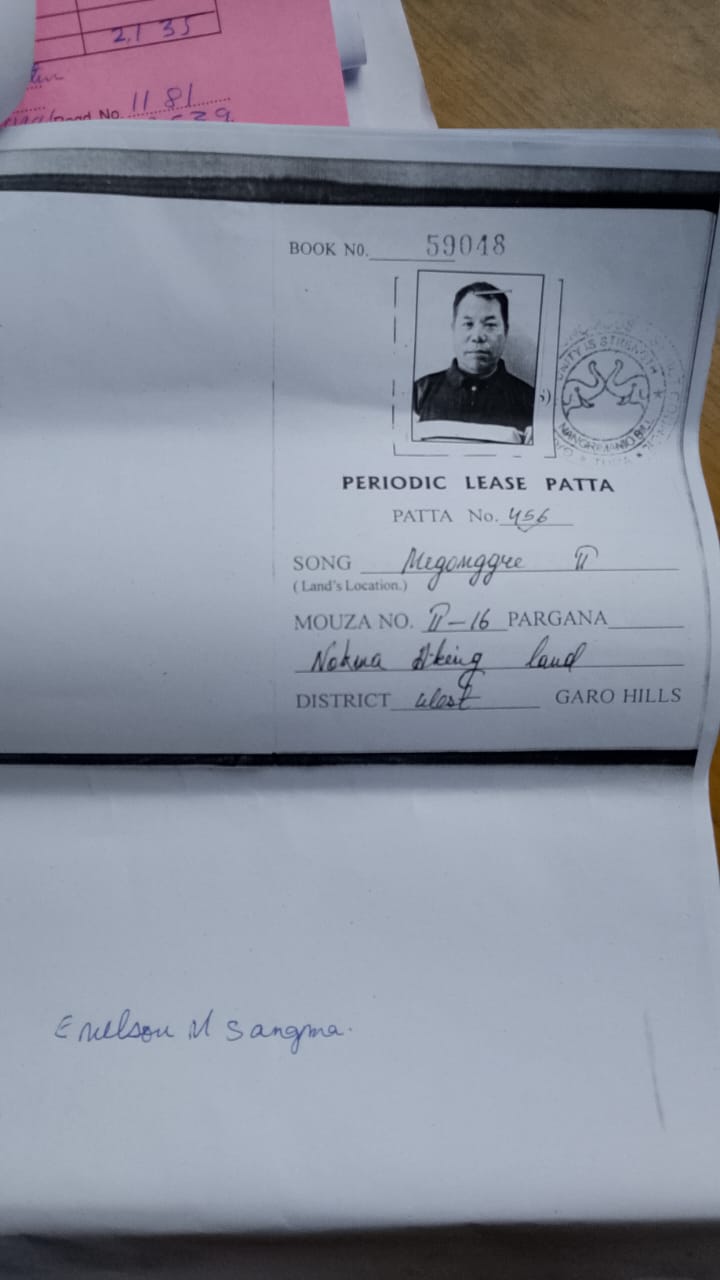 2,135
No. 1181
BOOK NO. 59048
UNITY IS STRENGTH
PERIODIC LEASE PATTA
PATTA No. 456
SONG Megonggre II
(Land's Location.)
MOUZA NO. II-16 PARGANA
Nokma A'king land
DISTRICT West GARO HILLS
Enelson M Sangma.